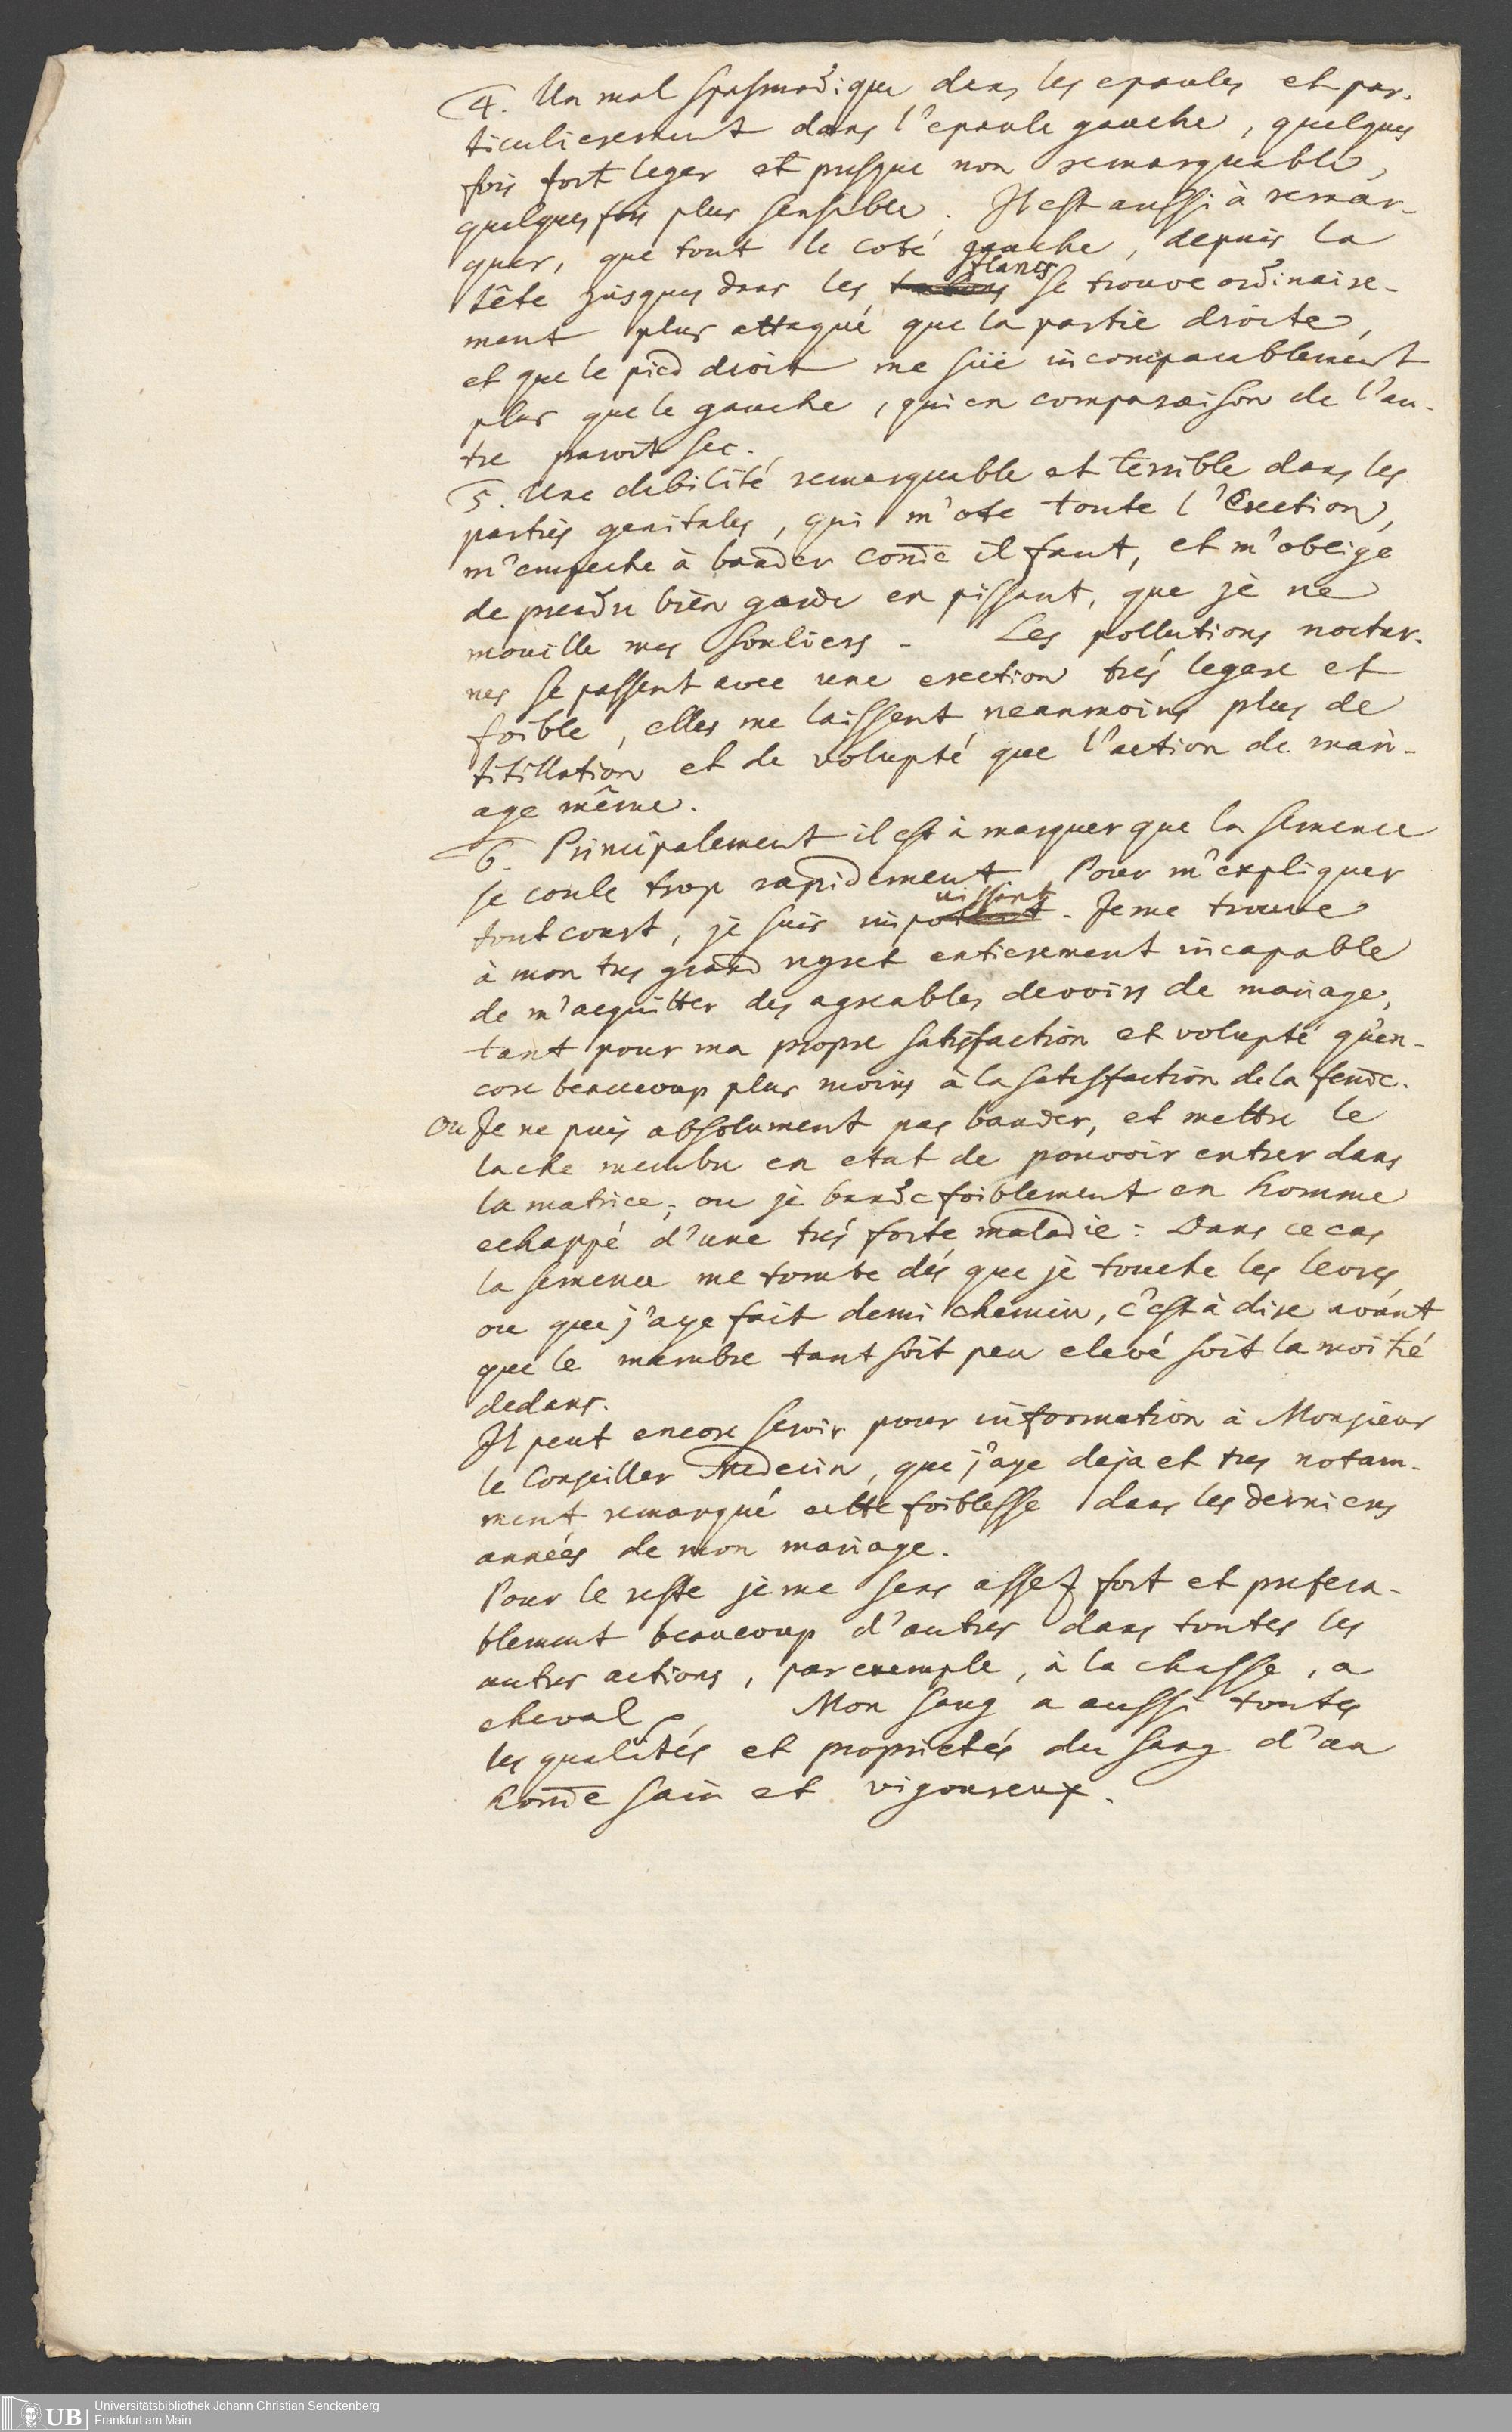 4. Un mal spasmodique dans les epaules et par-
ticulierement dans l'epaule gauche, quelques
fois fort leger et presque non remarquable,
quelques fois plus sensible. Il est aussi à remar-
quer, que tout le coté gauche, depuis la
tête jusques dans les flancs se trouve ordinaire-
ment plus attaqué que la partie droite,
et que le pied droit me süe incomparablement
plus que le gauche, qui en comparaison de l'au-
tre paroit sec.
5. Une debilité remarquable et terrible dans les
parties genitales, qui m'ote toute l'Erection,
m'empeche à bander com̄e il faut, et m'oblige
de prendre bien garde en pissant, que je ne
mouille mes souliers. Les pollutions noctur-
nes se passent avec une erection trés legere et
foible, elles me laissent neanmoins plus de
titillation et de volupté que l'action de mari-
age même.
6. Principalement il est à marquer que la semence
se coule trop rapidement. Pour m'expliquer
tout court, je suis impuissant. Je me trouve
à mon tres grand regret entierement incapable
de m'aequitter des agreables devoirs de mariage,
tant pour ma propre satisfaction et volupté qu'en-
core beaucoup plus moins à la satisfaction de la fem̄e.
Ou Je ne puis absolument pas bander, et mettre le
lache membre en etat de pouvoir entrer dans
la matrice; ou je bande foiblement en homme
echappé d'une trés forte maladie: Dans ce cas
la semence me tombe dés que je touche les levres,
ou que j'aye fait demi chemin, c'est à dire avant
que le membre tant soit peu elevé soit la moitié
dedans.
Il peut encore servir pour information à Monsieur
le Conseiller Medecin, que j'aye deja et tres notam-
ment remarqué cette foiblesse dans les derniers
années de mon mariage.
Pour le reste je me sens assez fort et prefera-
blement beaucoup d'autres dans toutes les
autres actions, par exemple, à la chasse, a
cheval Mon sang a aussi toutes
les qualités et proprietés du sang d'un
hom̄e sain et vigoureux.
UB
Universitätsbibliothek Johann Christian Senckenberg
Frankfurt am Main